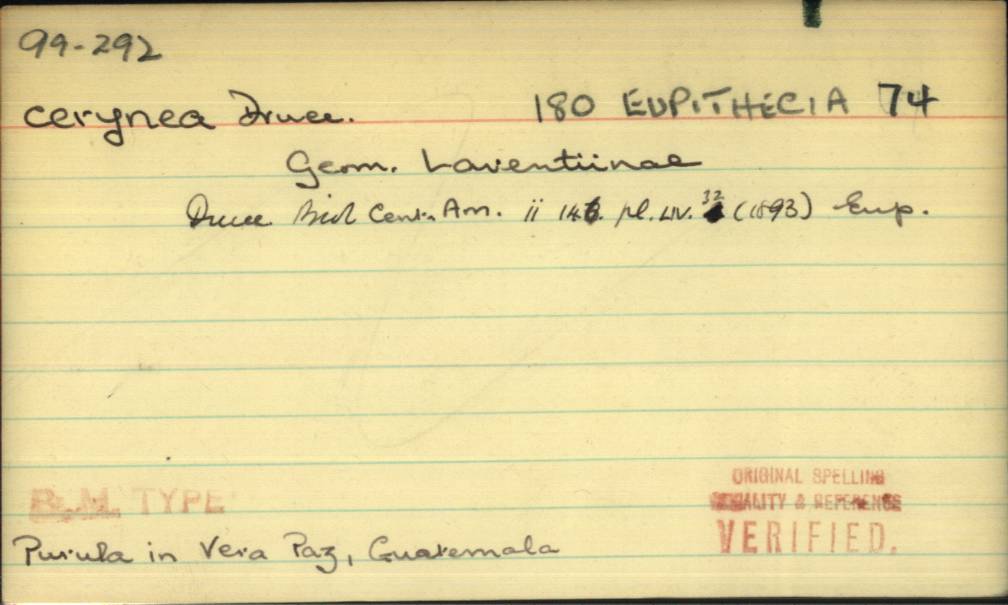 99-292
cerynea Druce. 180 EUPITHECIA 74
Geom. Larentiinae
Druce Biol Cent. Am. ii 146. pl. LIV. 32 (1893) Eup.
B.M. TYPE
ORIGINAL SPELLING
LOCALITY & REFERENCE
VERIFIED.
Purula in Vera Paz, Guatemala